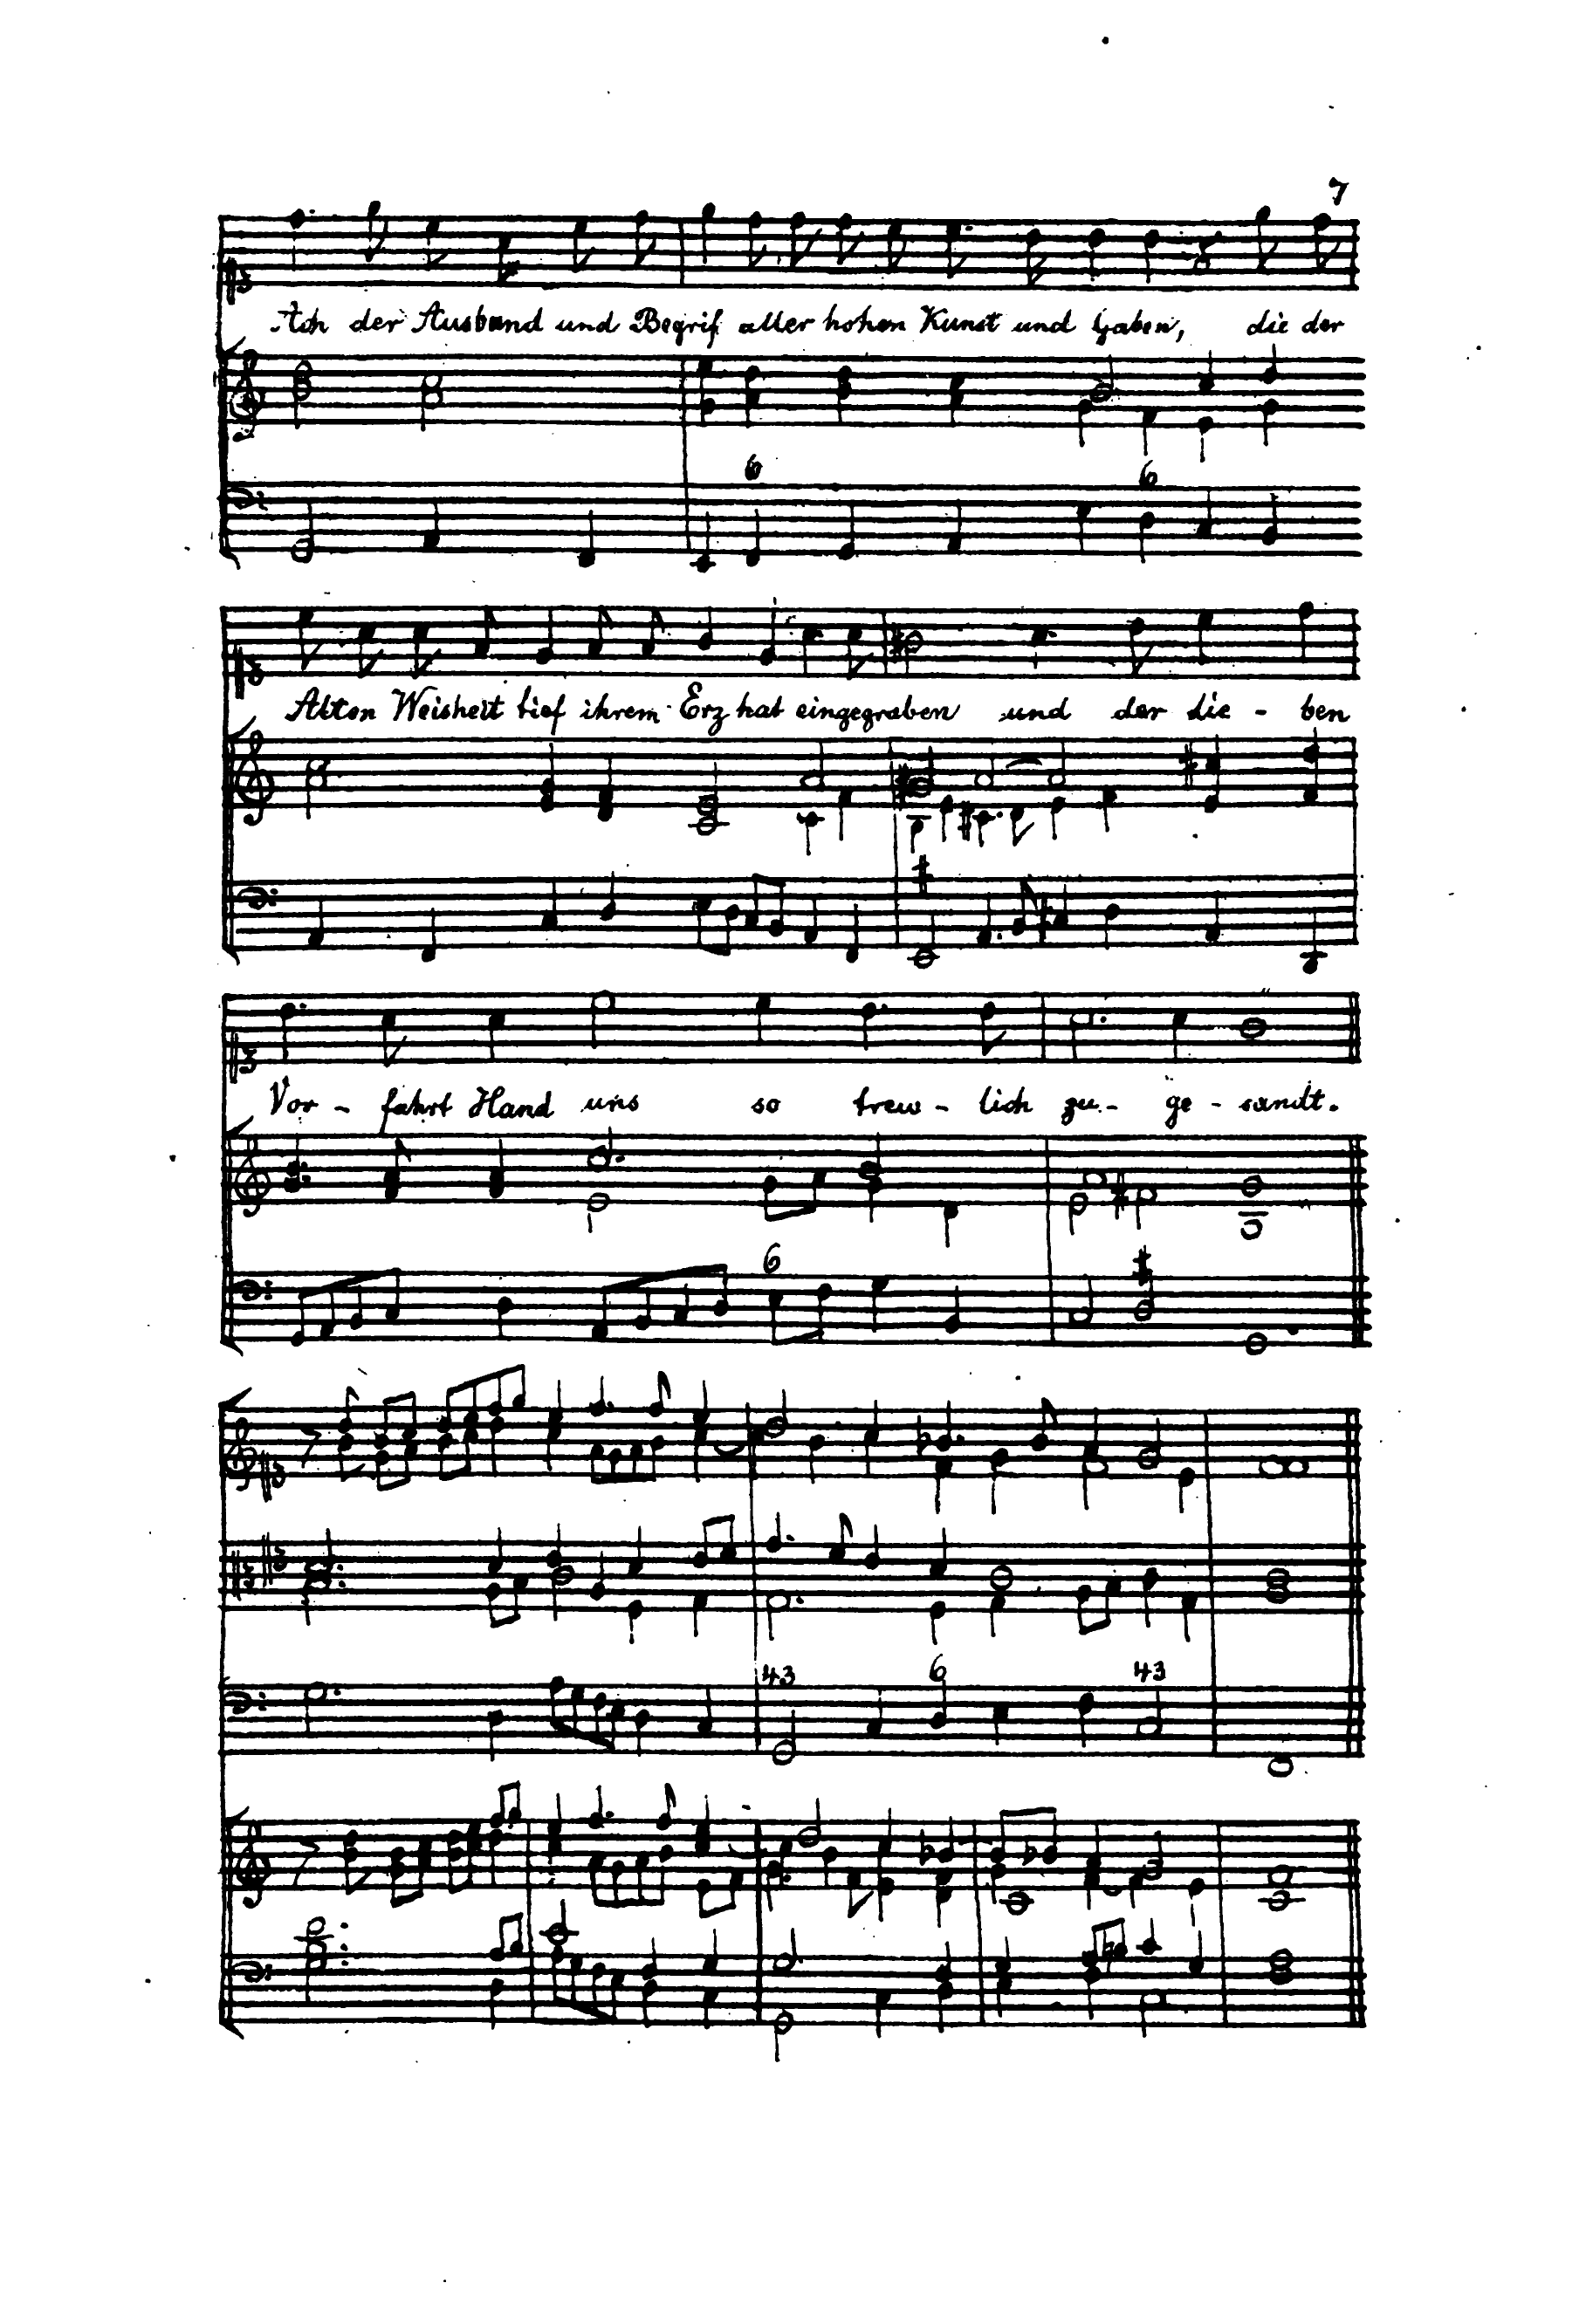 7
Ach der Ausband und Begrif aller hohen Kunst und Gaben, die der
6 6
Alten Weisheit tief ihrem Erz hat eingegraben und der die - ben
Vor - fahrt Hand uns so treu - lich zu - ge - sandt.
6
43 6 43